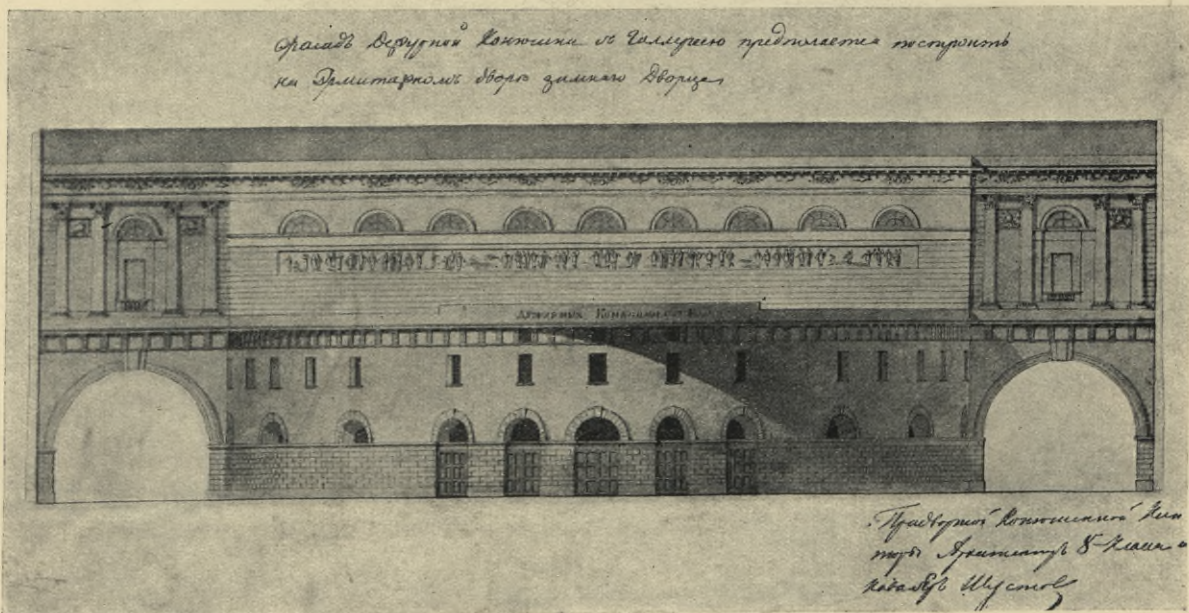 Фасадъ Дежурной Конюшни съ Галлереею предполагается построить
на Эрмитажномъ дворѣ зимняго Дворца
Дежурныя Конюшни
Придворной Конюшенной Кон
торы Архитекторъ 8 Класса и
Кавалеръ Шустовъ